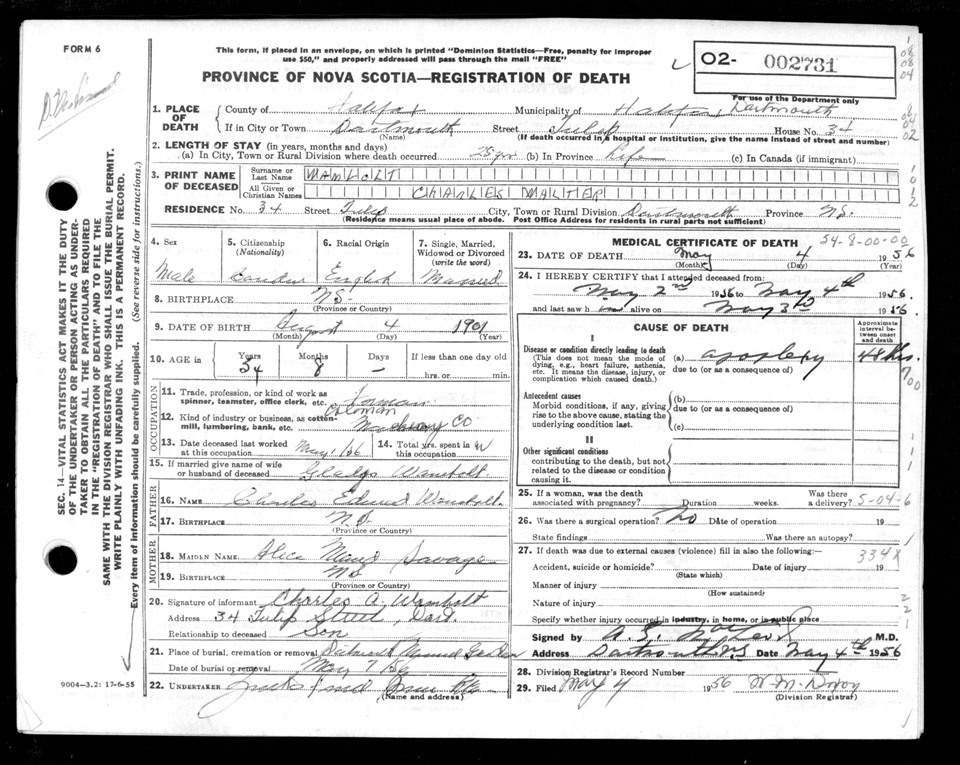 FORM 6
This form, if placed in an envelope, on which is printed "Dominion Statistics—Free, penalty for improper
use $50," and properly addressed will pass through the mail "FREE"
PROVINCE OF NOVA SCOTIA—REGISTRATION OF DEATH
02- 002731
For use of the Department only
1. PLACE OF DEATH
County of Halifax Municipality of Halifax, Dartmouth
If in City or Town Dartmouth Street Tulip House No. 34
(Name) (If death occurred in a hospital or institution, give the name instead of street and number)
2. LENGTH OF STAY (in years, months and days)
(a) In City, Town or Rural Division where death occurred 25 yrs (b) In Province Life (c) In Canada (if immigrant)
3. PRINT NAME OF DECEASED
Surname or Last Name WAMHOLT
All Given or Christian Names CHARLES WALTER
RESIDENCE No. 34 Street Tulip City, Town or Rural Division Dartmouth N.S.
(Residence means usual place of abode. Post Office Address for residents in rural parts not sufficient)
4. Sex Male
5. Citizenship (Nationality)
6. Racial Origin English
7. Single, Married, Widowed or Divorced (write the word) Married
8. BIRTHPLACE N.S.
(Province or Country)
9. DATE OF BIRTH August 4 1901
(Month) (Day) (Year)
10. AGE in Years 54 Months 8 Days – If less than one day old
hrs. or min.
OCCUPATION
11. Trade, profession, or kind of work as spinner, teamster, office clerk, etc. Foreman
12. Kind of industry or business, as cotton-mill, lumbering, bank, etc. Co
13. Date deceased last worked at this occupation May 1/56
14. Total yrs. spent in at this occupation
15. If married give name of wife or husband of deceased Gladys Wamholt
FATHER
16. NAME Charles Edward Wamholt
17. BIRTHPLACE N.S.
(Province or Country)
MOTHER
18. MAIDEN NAME Alice Maud Savage
19. BIRTHPLACE NS
(Province or Country)
20. Signature of informant Charles A. Wamholt
Address 34 Tulip Street, Dart.
Relationship to deceased Son
21. Place of burial, cremation or removal Dartmouth Memorial Gardens
Date of burial or removal May 7/56
22. UNDERTAKER
(Name and address)
MEDICAL CERTIFICATE OF DEATH
54-8-00-00
23. DATE OF DEATH May 4 1956
(Month) (Day) (Year)
24. I HEREBY CERTIFY that I attended deceased from
May 2nd 1956 to May 4th 1956.
and last saw him alive on May 3rd 1956.
CAUSE OF DEATH
Approximate interval between onset and death
I
Disease or condition directly leading to death (a) apoplexy 48 hrs.
(This does not mean the mode of dying, e.g., heart failure, asthenia, etc. It means the disease, injury, or complication which caused death.)
due to (or as a consequence of)
Antecedent causes
Morbid conditions, if any, giving rise to the above cause, stating the underlying condition last.
(b)
due to (or as a consequence of)
(c)
II
Other significant conditions
contributing to the death, but not related to the disease or condition causing it.
25. If a woman, was the death associated with pregnancy? Duration weeks. Was there a delivery? 5-04-6
26. Was there a surgical operation? No Date of operation 19
State findings Was there an autopsy?
27. If death was due to external causes (violence) fill in also the following:—
334X
Accident, suicide or homicide? Date of injury 19
(State which)
Manner of injury
(How sustained)
Nature of injury
Specify whether injury occurred in industry, in home, or in public place
Signed by M.D.
Address Dartmouth NS Date May 4th 1956
28. Division Registrar's Record Number
29. Filed May 4 1956
(Division Registrar)
SEC. 14—VITAL STATISTICS ACT MAKES IT THE DUTY
OF THE UNDERTAKER OR PERSON ACTING AS UNDER-
TAKER TO OBTAIN ALL THE PARTICULARS REQUIRED
IN THE "REGISTRATION OF DEATH" AND TO FILE THE
SAME WITH THE DIVISION REGISTRAR WHO SHALL ISSUE THE BURIAL PERMIT.
WRITE PLAINLY WITH UNFADING INK. THIS IS A PERMANENT RECORD.
Every item of information should be carefully supplied. (See reverse side for instructions.)
9004-3.2: 17-6-55